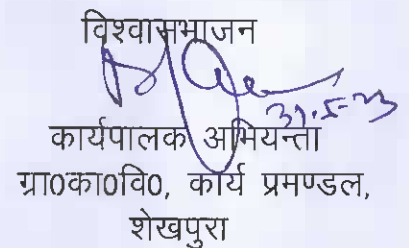 विश्वासभाजन
31.5.23
कार्यपालक अभियन्ता
ग्रा0का0वि0, कार्य प्रमण्डल,
शेखपुरा